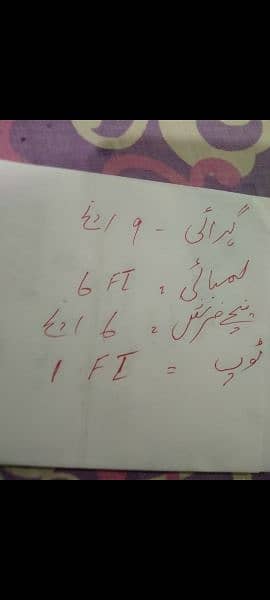 گہرائی - 9 انچ
لمبائی = 6 FT
نیچے فرنٹل = 6 انچ
ٹوپ = 1 FT